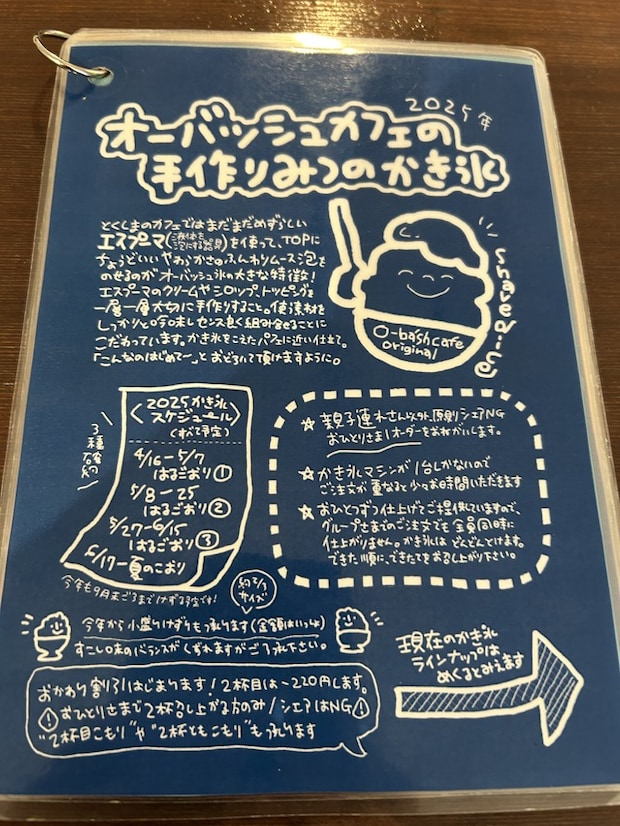 2025年
オーバッシュカフェの
手作りみつのかき氷
とくしまのカフェではまだまだめずらしい
エスプーマ(液体を泡にする器具)を使って、TOPに
ちょうどいいやわらかさのふんわりムース泡を
のせるのがオーバッシュ氷の大きな特徴!
エスプーマのクリームやシロップ、トッピングを
一層一層大切に手作りすること。使う素材を
しっかりと吟味しセンス良く組み合せることに
こだわっています。かき氷をこえたパフェに近い仕立て。
「こんなのはじめて〜」とおどろいて頂けますように。
shaved-ice
O-bashcafe
original
〈2025かき氷
スケジュール〉
(すべて予定)
3種確約
4/16-5/7
はるごおり①
5/8-25
はるごおり②
5/27-6/15
はるごおり③
6/17-夏のこおり
今年も9月末ごろまでけずる予定です!
☆親子連れさん以外、原則シェアNG
おひとりさま1オーダーをおねがいします。
☆かき氷マシンが1台しかないので
ご注文が重なると少々お時間いただきます
☆おひとつずつ仕上げてご提供していますので、
グループさまでのご注文でも全員同時に
仕上がりません。かき氷はどんどんとけます。
できた順に、できたてをお召し上がり下さい。
約2/3
サイズ
今年から小盛りけずりも承ります(金額はいっしょ)
すこし味のバランスがくずれますがご了承下さい。
おかわり割引はじまります!2杯目は-220円します。
おひとりさまで2杯召し上がる方のみ/シェアはNG
"2杯目こもり"や"2杯ともこもり"も承ります
現在のかき氷
ラインナップは
めくるとみえます